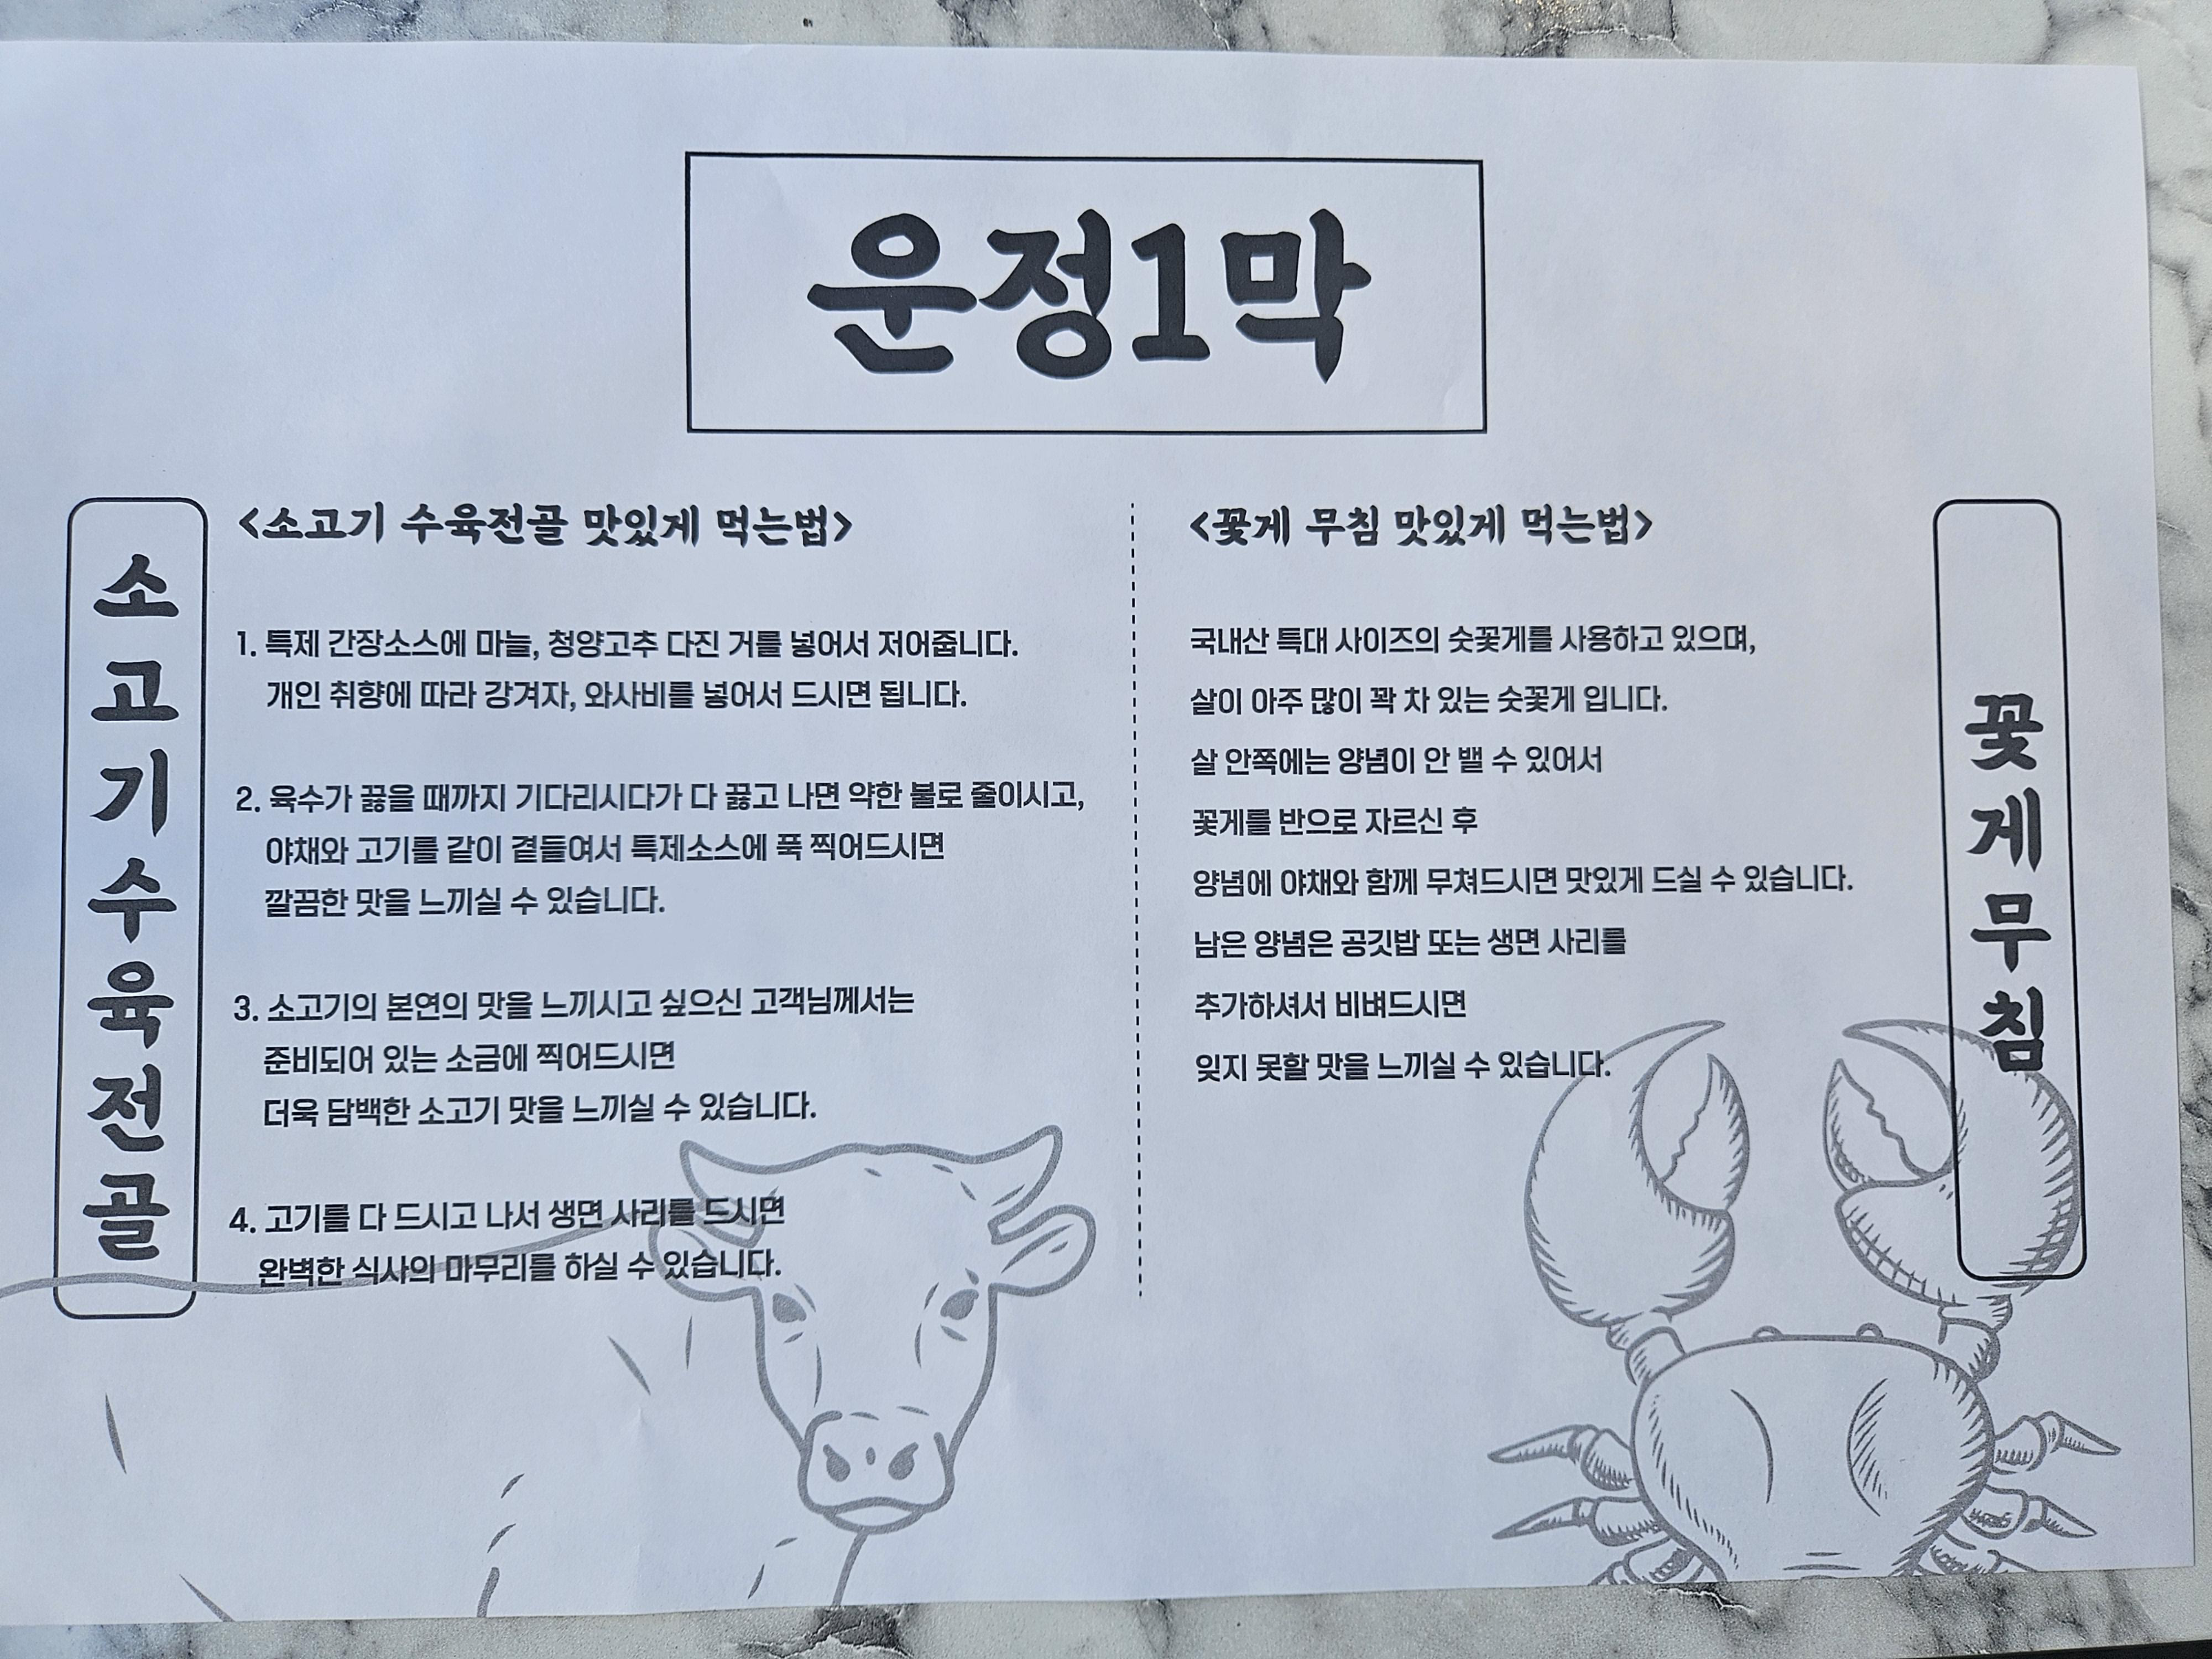 운정1막
소고기수육전골
<소고기 수육전골 맛있게 먹는법>
1. 특제 간장소스에 마늘, 청양고추 다진 거를 넣어서 저어줍니다.
개인 취향에 따라 강겨자, 와사비를 넣어서 드시면 됩니다.
2. 육수가 끓을 때까지 기다리시다가 다 끓고 나면 약한 불로 줄이시고,
야채와 고기를 같이 곁들여서 특제소스에 푹 찍어드시면
깔끔한 맛을 느끼실 수 있습니다.
3. 소고기의 본연의 맛을 느끼시고 싶으신 고객님께서는
준비되어 있는 소금에 찍어드시면
더욱 담백한 소고기 맛을 느끼실 수 있습니다.
4. 고기를 다 드시고 나서 생면 사리를 드시면
완벽한 식사의 마무리를 하실 수 있습니다.
<꽃게 무침 맛있게 먹는법>
국내산 특대 사이즈의 숫꽃게를 사용하고 있으며,
살이 아주 많이 꽉 차 있는 숫꽃게 입니다.
살 안쪽에는 양념이 안 밸 수 있어서
꽃게를 반으로 자르신 후
양념에 야채와 함께 무쳐드시면 맛있게 드실 수 있습니다.
남은 양념은 공깃밥 또는 생면 사리를
추가하셔서 비벼드시면
잊지 못할 맛을 느끼실 수 있습니다.
꽃게무침